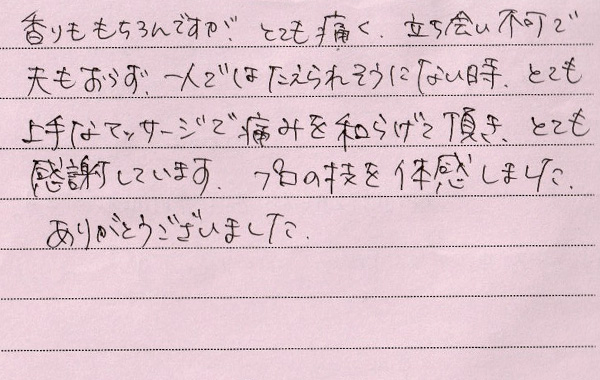 香りももちろんですが、とても痛く、立ち会い不可で
夫もおらず、一人ではたえられそうにない時、とても
上手なマッサージで痛みを和らげて頂き、とても
感謝しています。プロの技を体感しました。
ありがとうございました。